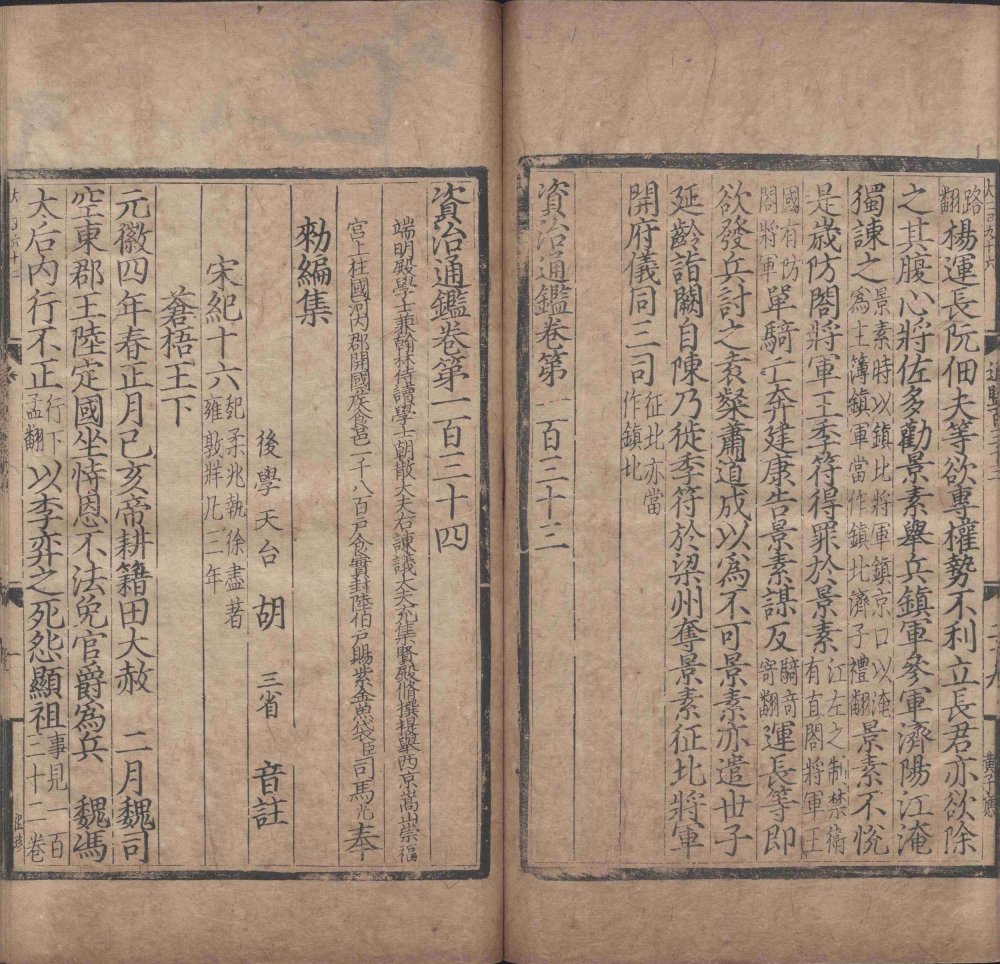 路翻楊運長阮佃夫等欲專權勢不利立長君亦欲除
之其腹心將佐多勸景素舉兵鎮軍參軍濟陽江淹
獨諫之景素時以鎮北將軍鎮京口以淹為主簿鎮軍當作鎮北濟子禮翻景素不悅
是歲防閤將軍王季符得罪於景素江左之制禁衛有直閤將軍王
國有防閤將軍單騎亡奔建康告景素謀反騎奇寄翻運長等即
欲發兵討之袁粲蕭道成以為不可景素亦遣世子
延齡詣闕自陳乃徙季符於梁州奪景素征北將軍
開府儀同三司征北亦當作鎮北
資治通鑑卷第一百三十三
資治通鑑卷第一百三十四
端明殿學士兼翰林侍讀學士朝散大夫右諫議大夫充集賢殿修撰提舉西京嵩山崇福
宮上柱國河內郡開國侯食邑一千八百戶食實封陸伯戶賜紫金魚袋臣司馬光奉
勑編集
後學天台胡三省音註
宋紀十六起柔兆執徐盡著雍敦牂凡三年
蒼梧王下
元徽四年春正月己亥帝耕籍田大赦 二月魏司
空東郡王陸定國坐恃恩不法免官爵為兵 魏馮
太后內行不正行下孟翻以李弈之死怨顯祖事見一百三十二卷